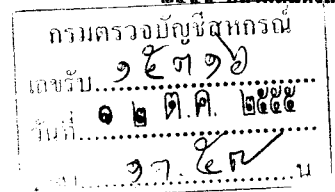 กรมตรวจบัญชีสหกรณ์
เลขรับ...๑๕๓๑๖
วันที่ ๑ ๒ ต.ค. ๒๕๕๕
๑๓.๕๗ น